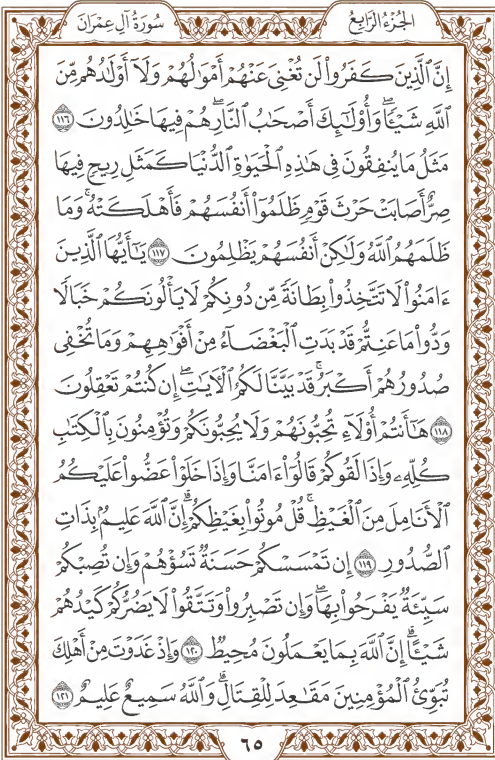 الجُزْءُ الرَّابِعُ
سُورَةُ آلِ عِمْرَانَ
إِنَّ ٱلَّذِينَ كَفَرُواْ لَن تُغْنِيَ عَنْهُمْ أَمْوَٰلُهُمْ وَلَآ أَوْلَٰدُهُم مِّنَ
ٱللَّهِ شَيْـًٔا ۖ وَأُوْلَٰٓئِكَ أَصْحَٰبُ ٱلنَّارِ ۚ هُمْ فِيهَا خَٰلِدُونَ ١١٦
مَثَلُ مَا يُنفِقُونَ فِي هَٰذِهِ ٱلْحَيَوٰةِ ٱلدُّنْيَا كَمَثَلِ رِيحٍ فِيهَا
صِرٌّ أَصَابَتْ حَرْثَ قَوْمٍ ظَلَمُوٓاْ أَنفُسَهُمْ فَأَهْلَكَتْهُ ۚ وَمَا
ظَلَمَهُمُ ٱللَّهُ وَلَٰكِنْ أَنفُسَهُمْ يَظْلِمُونَ ١١٧ يَٰٓأَيُّهَا ٱلَّذِينَ
ءَامَنُواْ لَا تَتَّخِذُواْ بِطَانَةً مِّن دُونِكُمْ لَا يَأْلُونَكُمْ خَبَالًا
وَدُّواْ مَا عَنِتُّمْ قَدْ بَدَتِ ٱلْبَغْضَآءُ مِنْ أَفْوَٰهِهِمْ وَمَا تُخْفِي
صُدُورُهُمْ أَكْبَرُ ۚ قَدْ بَيَّنَّا لَكُمُ ٱلْـَٔايَٰتِ ۖ إِن كُنتُمْ تَعْقِلُونَ
١١٨ هَٰٓأَنتُمْ أُوْلَآءِ تُحِبُّونَهُمْ وَلَا يُحِبُّونَكُمْ وَتُؤْمِنُونَ بِٱلْكِتَٰبِ
كُلِّهِۦ وَإِذَا لَقُوكُمْ قَالُوٓاْ ءَامَنَّا وَإِذَا خَلَوْاْ عَضُّواْ عَلَيْكُمُ
ٱلْأَنَامِلَ مِنَ ٱلْغَيْظِ ۚ قُلْ مُوتُواْ بِغَيْظِكُمْ ۗ إِنَّ ٱللَّهَ عَلِيمٌۢ بِذَاتِ
ٱلصُّدُورِ ١١٩ إِن تَمْسَسْكُمْ حَسَنَةٌ تَسُؤْهُمْ وَإِن تُصِبْكُمْ
سَيِّئَةٌ يَفْرَحُواْ بِهَا ۖ وَإِن تَصْبِرُواْ وَتَتَّقُواْ لَا يَضُرُّكُمْ كَيْدُهُمْ
شَيْـًٔا ۗ إِنَّ ٱللَّهَ بِمَا يَعْمَلُونَ مُحِيطٌ ١٢٠ وَإِذْ غَدَوْتَ مِنْ أَهْلِكَ
تُبَوِّئُ ٱلْمُؤْمِنِينَ مَقَٰعِدَ لِلْقِتَالِ ۗ وَٱللَّهُ سَمِيعٌ عَلِيمٌ ١٢١
٦٥